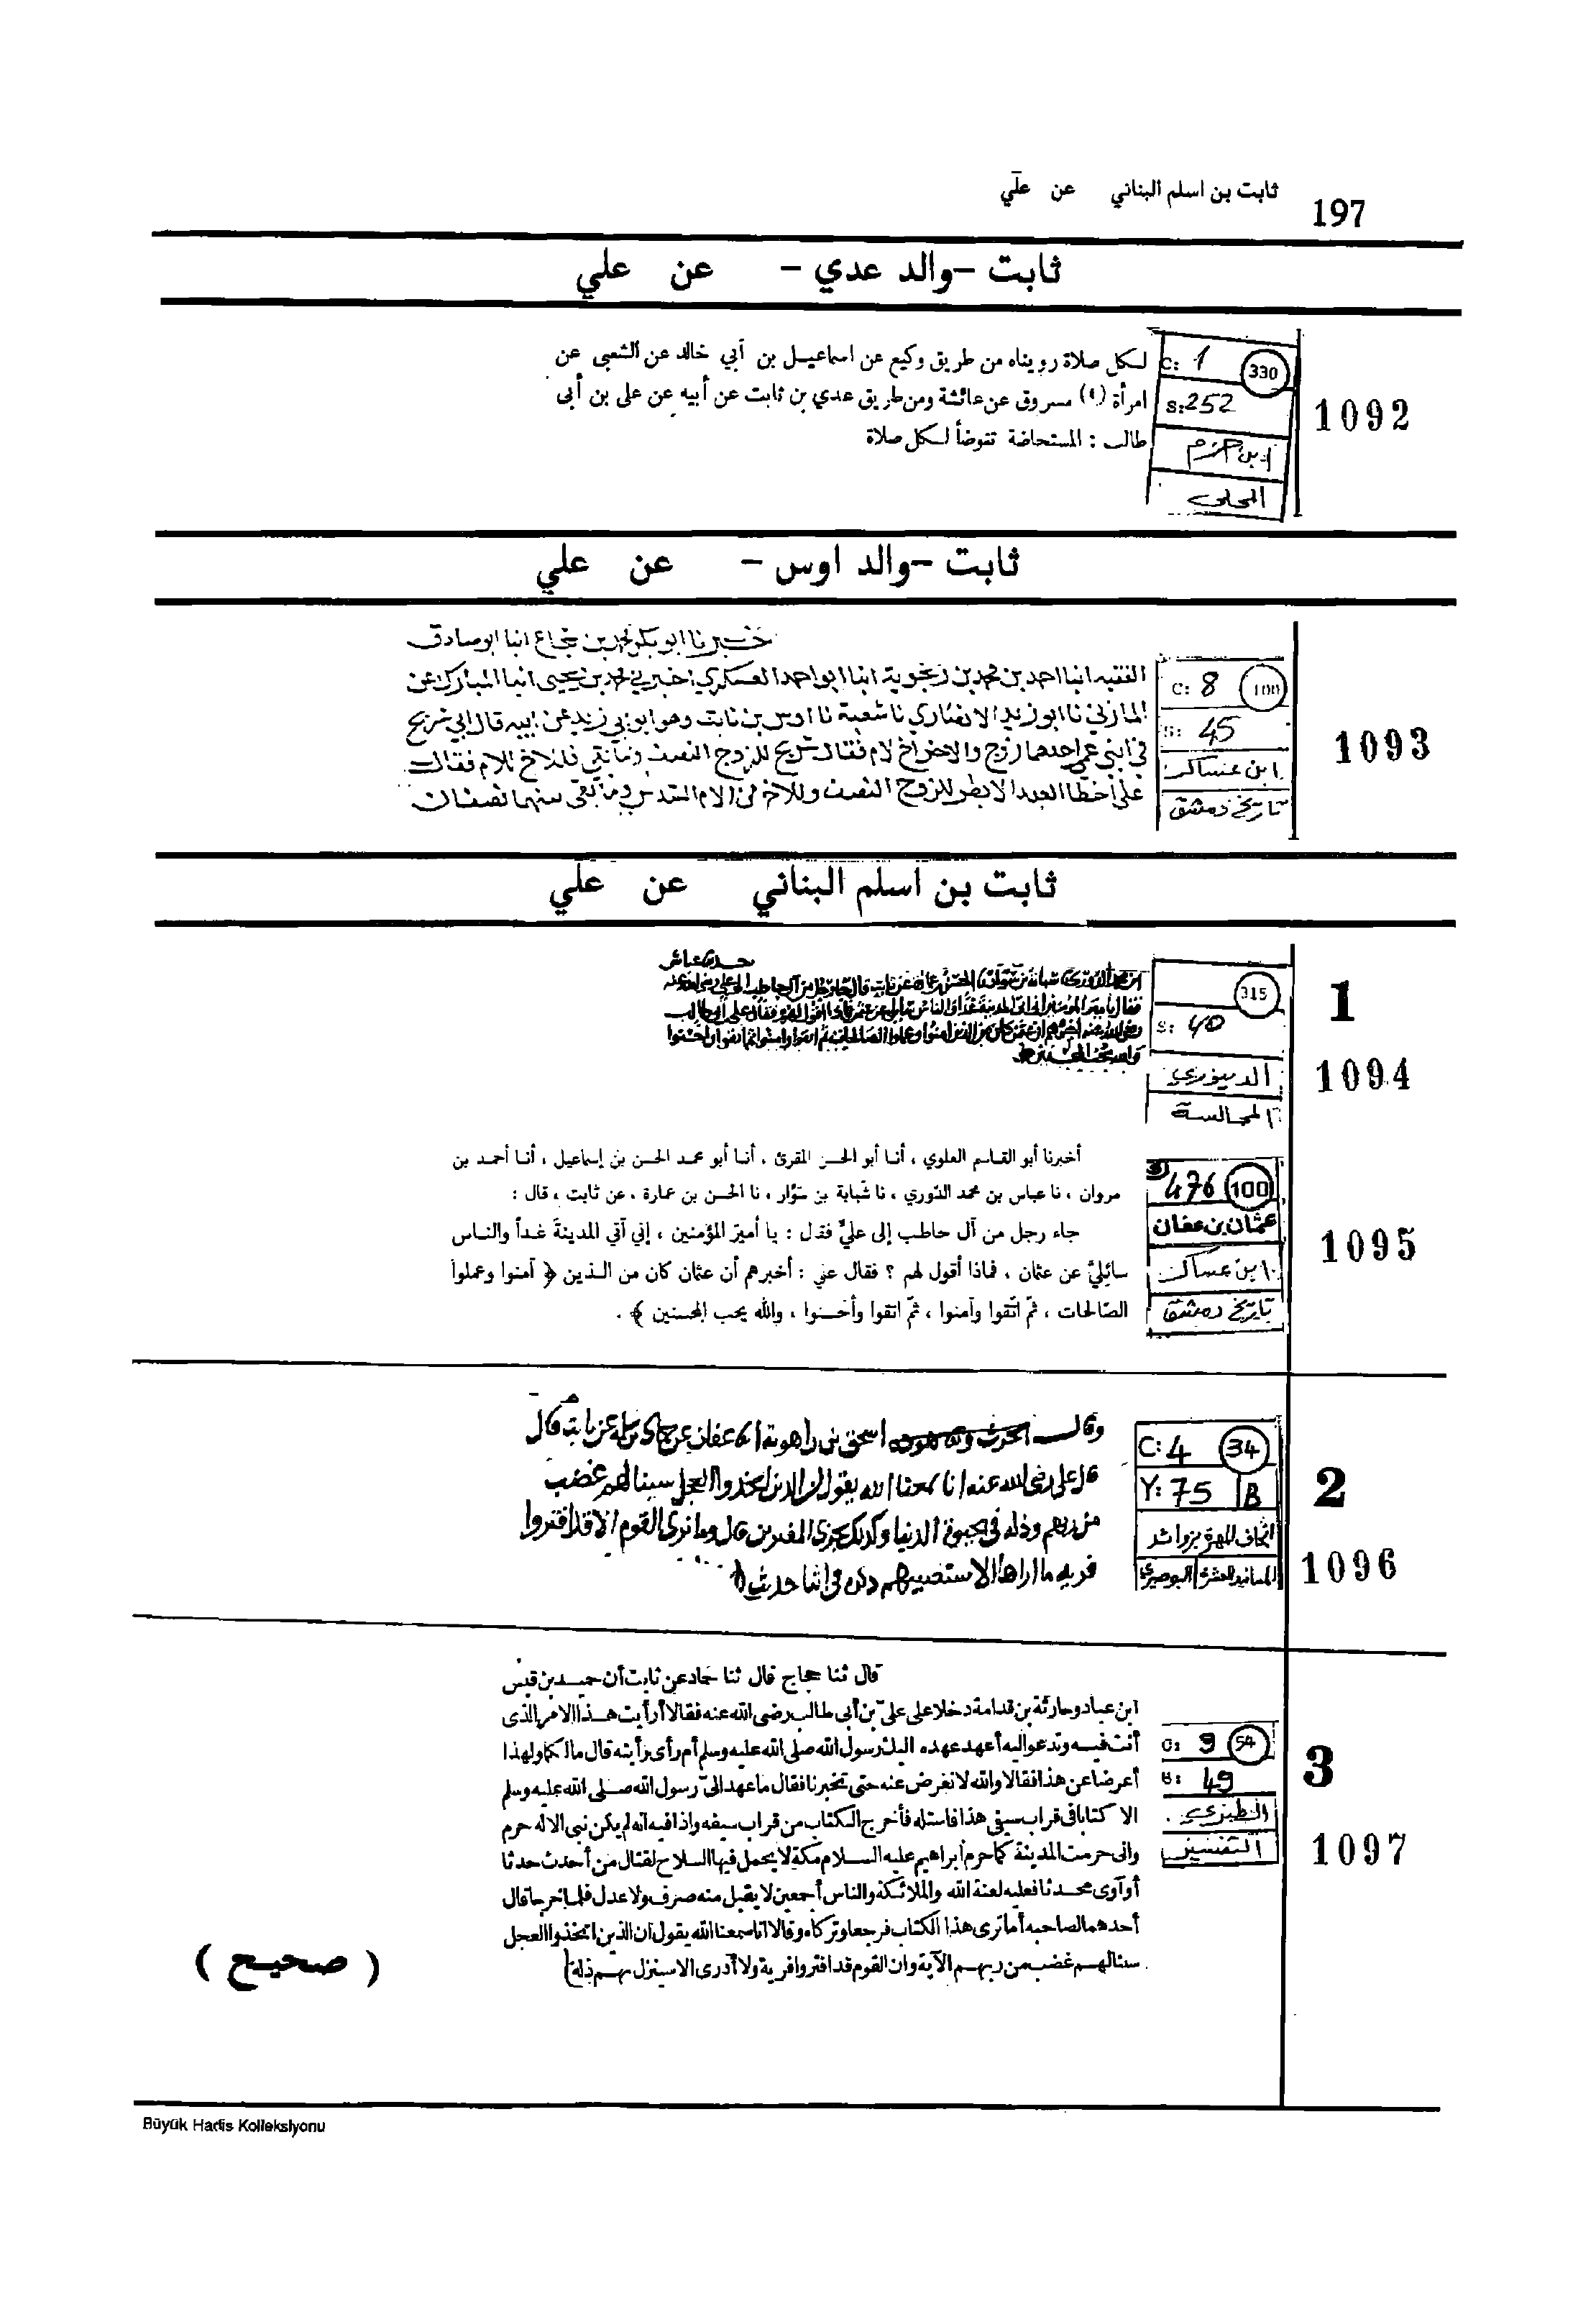 ثابت بن اسلم البناني عن علي
197
ثابت -والد عدي - عن علي
1092
C: 1 330
S:252
ابن حزم
المحلى
لكل صلاة رويناه من طريق وكيع عن اسماعيل بن أبي خالد عن الشعبى عن
امرأة (١) مسروق عن عائشة ومن طريق عدي بن ثابت عن أبيه عن على بن أبى
طالب : المستحاضة تتوضأ لكل صلاة
ثابت -والد اوس - عن علي
1093
C: 8 100
S: 45
ابن عساكر
تاريخ دمشق
ابو بكر محمد بن شجاع انبا ابو صادق
الفقيه انبا احمد بن محمد بن زنجوية انبا ابو احمد العسكري اخبرني محمد بن يحيى انبا المبارك عن
المازني نا ابو زيد الانصاري نا شعبة نا اوس بن ثابت وهو ابو بي زيد عن ابيه قال اتي شريح
في ابني عم احدهما زوج والاخر اخ لام فقال شريح للزوج النصف وما بقي فللاخ للام فقال
علي اخطا العبد الابظر للزوج النصف وللاخ من الام السدس وما بقى بينهما نصفان
ثابت بن اسلم البناني عن علي
1
1094
315
S: 40
الدينوري
المجالسة
1095
476 100
عثمان بن عفان
ابن عساكر
تاريخ دمشق
أخبرنا أبو القاسم العلوي ، أنا أبو الحسن المقرئ ، أنا أبو محمد الحسن بن إسماعيل ، أنا أحمد بن
مروان ، نا عباس بن محمد الدّوري ، نا شَبابة بن سَوَّار ، نا الحسن بن عمارة ، عن ثابت ، قال :
جاء رجل من آل حاطب إلى عليّ فقال : يا أميرَ المؤمنين ، إني آتي المدينةَ غداً والناس
سائِليَّ عن عثمان ، فماذا أقول لهم ؟ فقال علي : أخبرهم أن عثمان كان من الذين ﴿ آمنوا وعملوا
الصّالحات ، ثمّ اتّقوا وآمنوا ، ثمّ اتقوا وأحسنوا ، والله يحب المحسنين ﴾ .
2
1096
C: 4 34
Y: 75 B
اتحاف المهرة بزوائد
المسانيد العشرة البوصيري
وقال اسحق بن راهوية انا عفان عن حماد بن سلمة عن ثابت قال
قال على رضى الله عنه انا سمعنا الله يقول ان الذين اتخذوا العجل سينالهم غضب
من ربهم وذلة في الحيوة الدنيا وكذلك نجزى المفترين قال وما نرى القوم الا قد افتروا
فرية ما اراها الا ستصيبهم
3
1097
C: 9 54
S: 49
الطبري
التفسير
قال ثنا حجاج قال ثنا حماد عن ثابت أن حميد بن قيس
ابن عباد وحارثة بن قدامة دخلا على على بن أبى طالب رضى الله عنه فقالا أرأيت هذا الامر الذى
أنت فيه وتدعو اليه أعهد عهده اليك رسول الله صلى الله عليه وسلم أم رأى رأيته قال مالكما ولهذا
أعرضا عن هذا فقالا والله لا نعرض عنه حتى تخبرنا فقال ما عهد الىّ رسول الله صلى الله عليه وسلم
الا كتابا فى قراب سيفى هذا فاستله فأخرج الكتاب من قراب سيفه واذا فيه انه لم يكن نبى الا له حرم
وانى حرمت المدينة كما حرم ابراهيم عليه السلام مكة لا يحمل فيها السلاح لقتال من أحدث حدثا
أو آوى محدثا فعليه لعنة الله والملائكة والناس أجمعين لا يقبل منه صرف ولا عدل فلما خرجا قال
أحدهما لصاحبه أما ترى هذا الكتاب فرجعا وتركاه وقالا انا سمعنا الله يقول ان الذين اتخذوا العجل
سينالهم غضب من ربهم الآية وان القوم قد افتروا فرية ولا أدرى الا سينزل بهم ذلة
( صحيح )
Büyük Hadis Kolleksiyonu